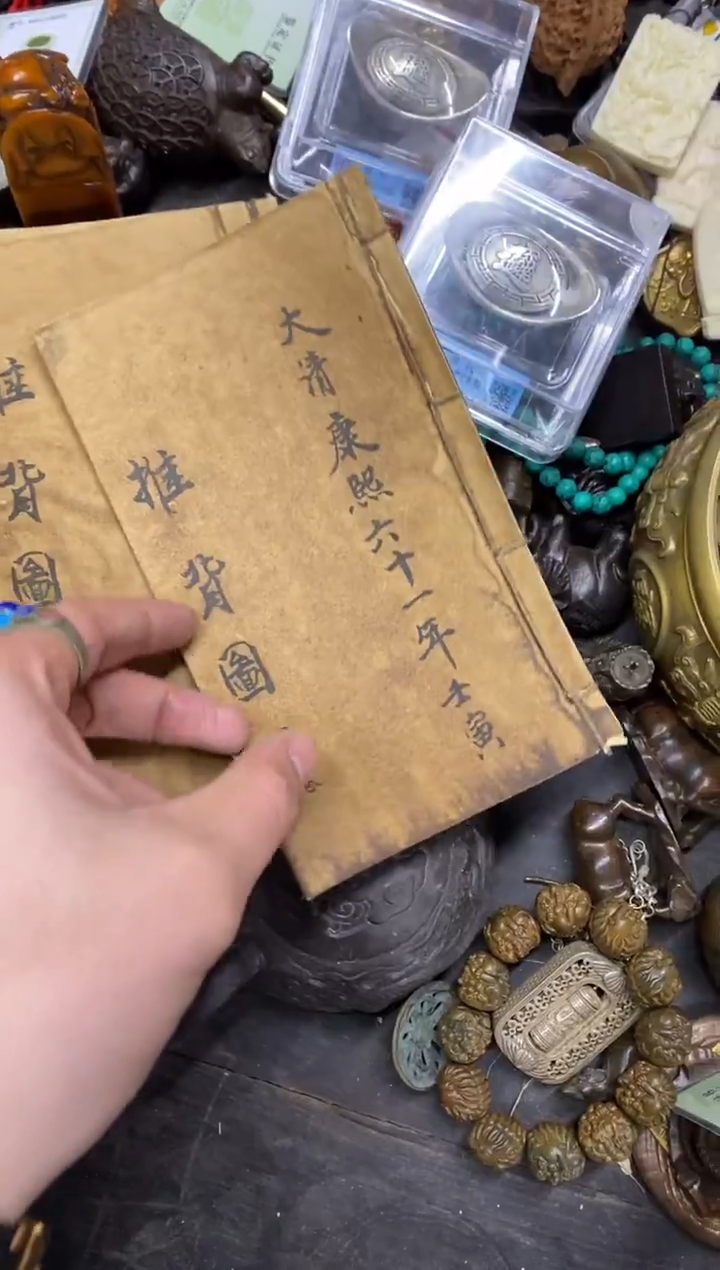 大清康熙六十一年壬寅
推背圖
推背圖